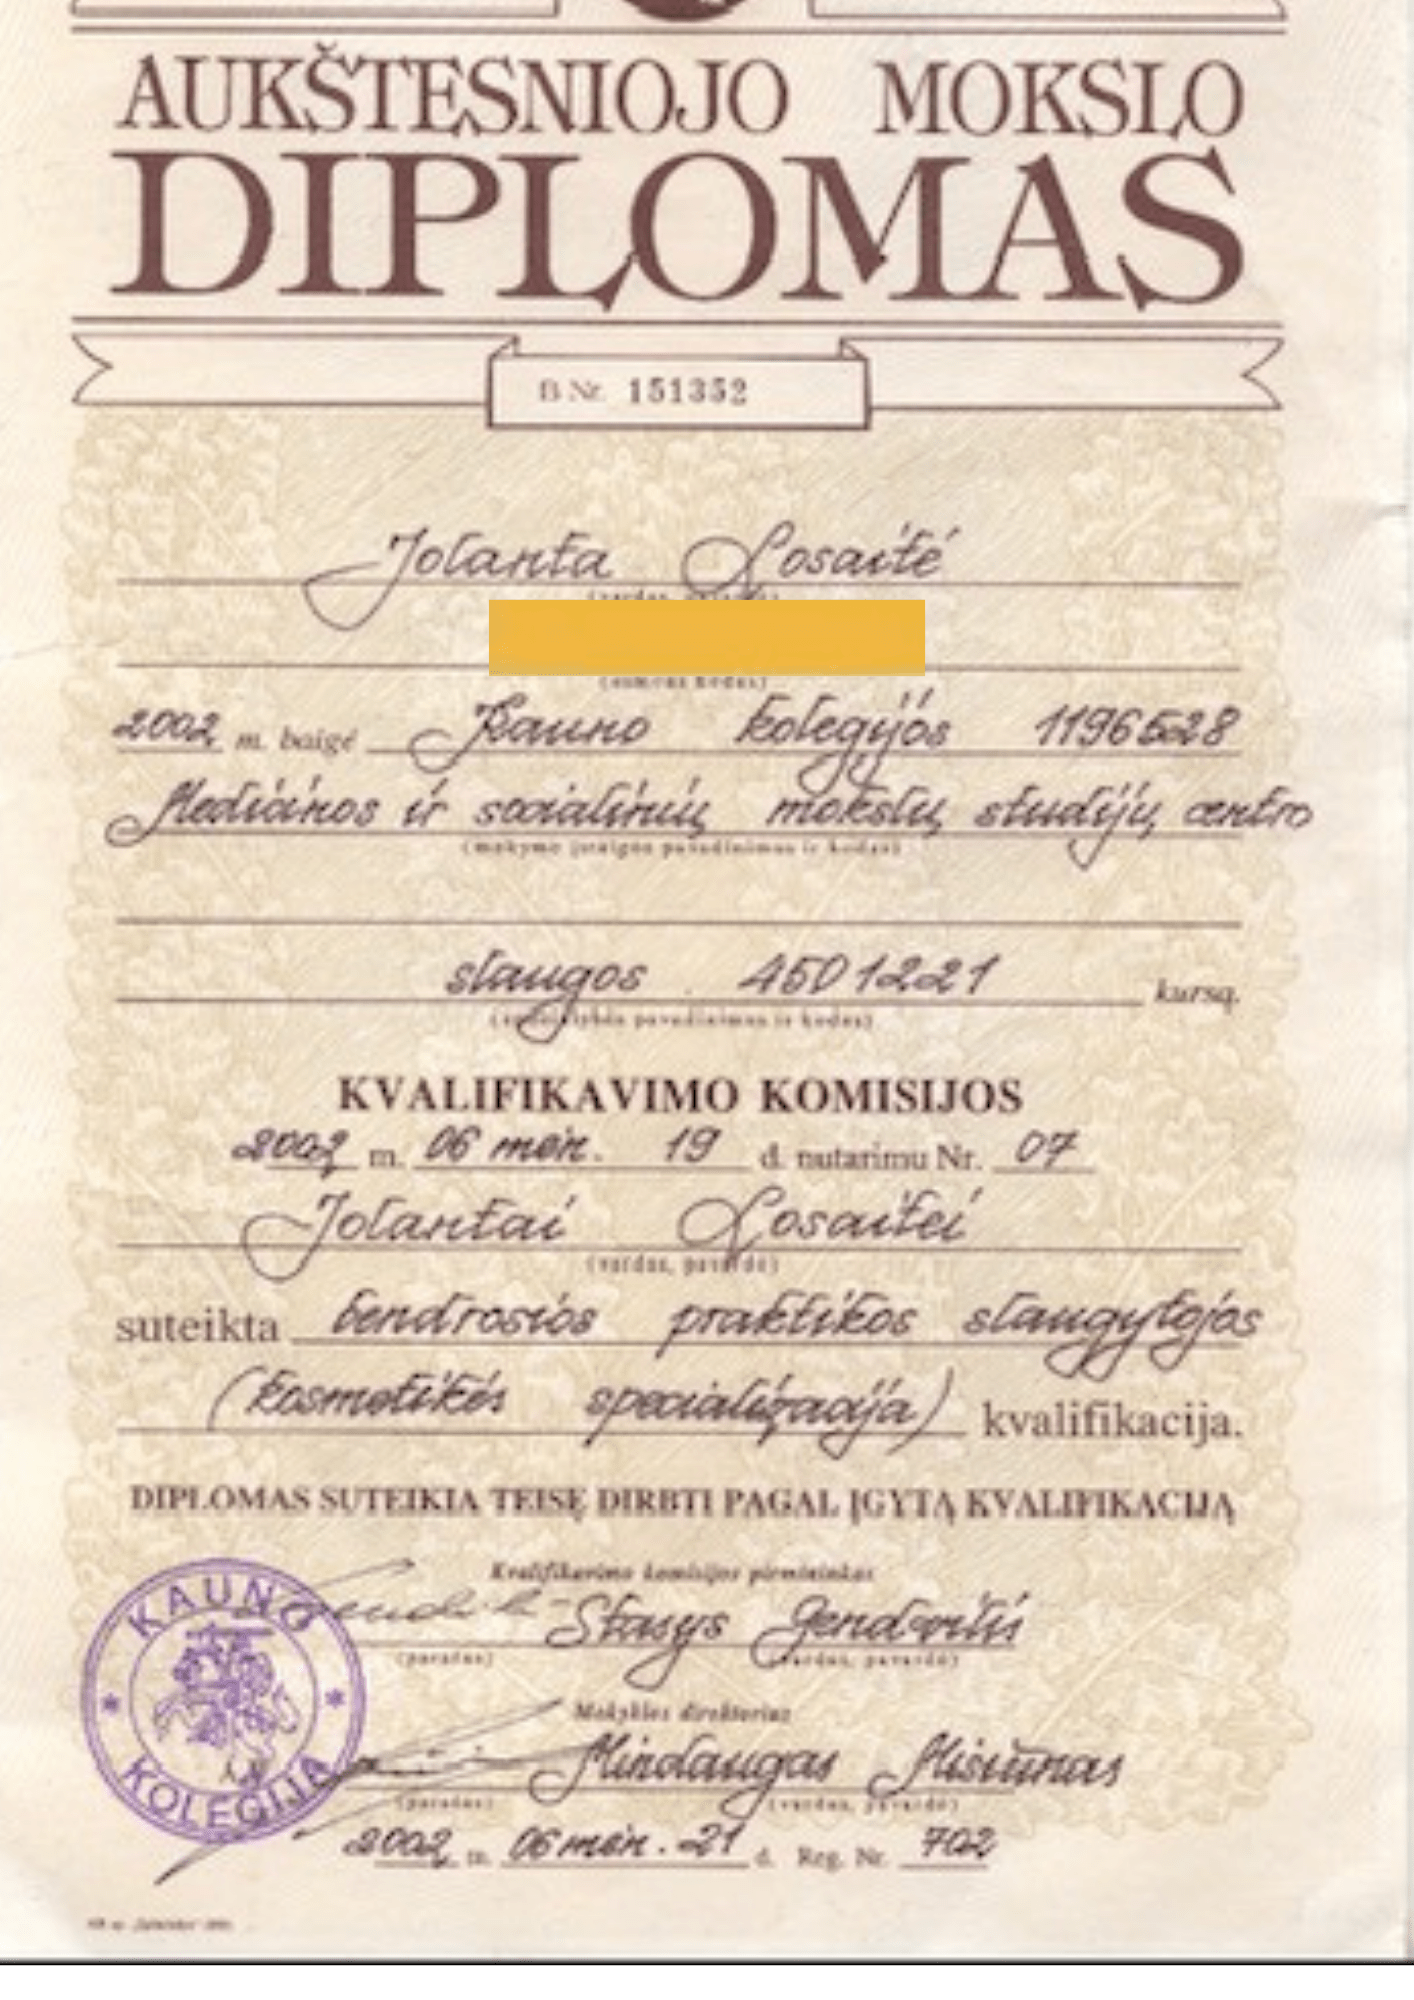 AUKŠTESNIOJO MOKSLO
DIPLOMAS
B Nr. 151352
Jolanta Losaitė
(vardas, pavardė)
(asmens kodas)
2002 m. baigė Kauno kolegijos 1196528
Medicinos ir socialinių mokslų studijų centro
(mokymo įstaigos pavadinimas ir kodas)
slaugos 4501221 kursą.
(specialybės pavadinimas ir kodas)
KVALIFIKAVIMO KOMISIJOS
2002 m. 06 mėn. 19 d. nutarimu Nr. 07
Jolantai Losaitei
(vardas, pavardė)
suteikta bendrosios praktikos slaugytojos
(kosmetikės specializacija) kvalifikacija.
DIPLOMAS SUTEIKIA TEISĘ DIRBTI PAGAL ĮGYTĄ KVALIFIKACIJĄ
Kvalifikavimo komisijos pirmininkas
Stasys Gendvilis
(parašas) (vardas, pavardė)
Mokyklos direktorius
Mindaugas Misiūnas
(parašas) (vardas, pavardė)
2002 m. 06 mėn. 21 d. Reg. Nr. 702
KAUNO KOLEGIJA